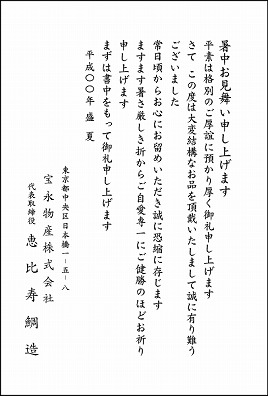 暑中お見舞い申し上げます
平素は格別のご厚誼に預かり厚く御礼申し上げます
さて この度は大変結構なお品を頂戴いたしまして誠に有り難う
ございました
常日頃からお心にお留めいただき誠に恐縮に存じます
ますます暑さ厳しき折からご自愛専一にご健勝のほどお祈り
申し上げます
まずは書中をもって御礼申し上げます
平成〇〇年 盛 夏
東京都中央区日本橋一-五-八
宝永物産株式会社
代表取締役 恵比寿鯛造